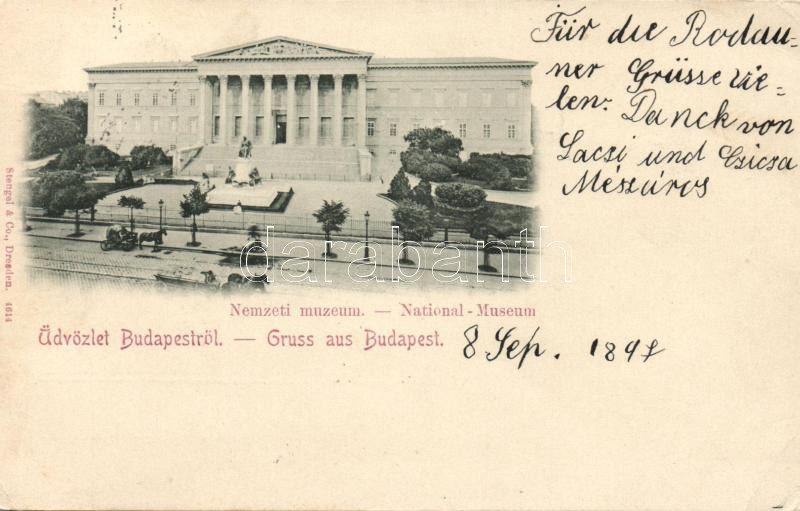 Für die Rodau-
ner Grüsse vie-
len: Danck von
Laczi und Czicza
Mészáros
Stengel & Co., Dresden. 4614
darabanth
Nemzeti muzeum. — National-Museum
Üdvözlet Budapestről. — Gruss aus Budapest.
8 Sep. 1897